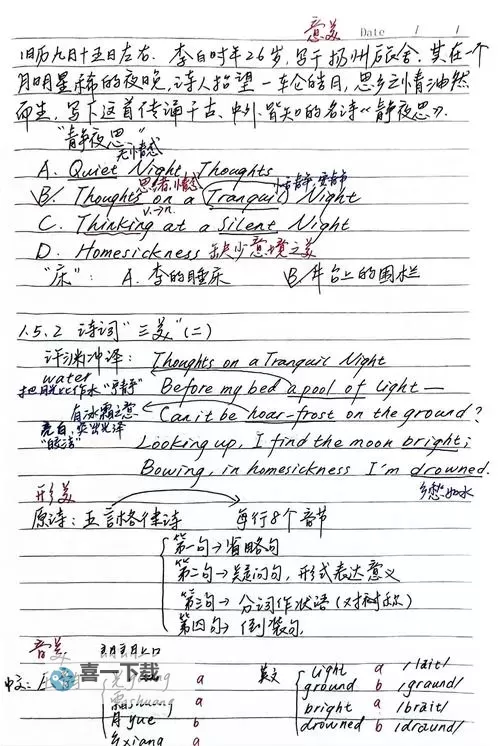 意美 Date / /
旧历九月十五日左右. 李白时年26岁, 写于扬州旅舍. 其在一个
月明星稀的夜晚, 诗人抬望一轮皓月, 思乡之情油然
而生, 写下这首传诵千古、中外皆知的名诗《静夜思》.
"静夜思"
无情感
A. Quiet Night Thoughts
思绪,情感
B. Thoughts on a Tranquil Night
v.→n.
C. Thinking at a Silent Night
D. Homesickness 缺少意境之美
"床": A. 李的睡床 B. 井台上的围栏
1.5.2 诗词"三美"(二)
许渊冲译: Thoughts on a Tranquil Night
water
把月光比作水"宁静" Before my bed a pool of light—
有冰霜之意 Can it be hoar-frost on the ground?
亮白,突出光泽
"皎洁" Looking up, I find the moon bright;
Bowing, in homesickness I'm drowned.
形美 乡愁如水
原诗: 五言格律诗 每行8个音节
第一句→省略句
第二句→疑问句, 形式表达意义
第三句→分词作状语(对称)
第四句→倒装句.
音美 朗朗上口
中文: 英文 light a /laɪt/
喜一下载
霜shuang a ground b /graund/
月yue b bright a /braɪt/
乡xiang a drowned b /draund/